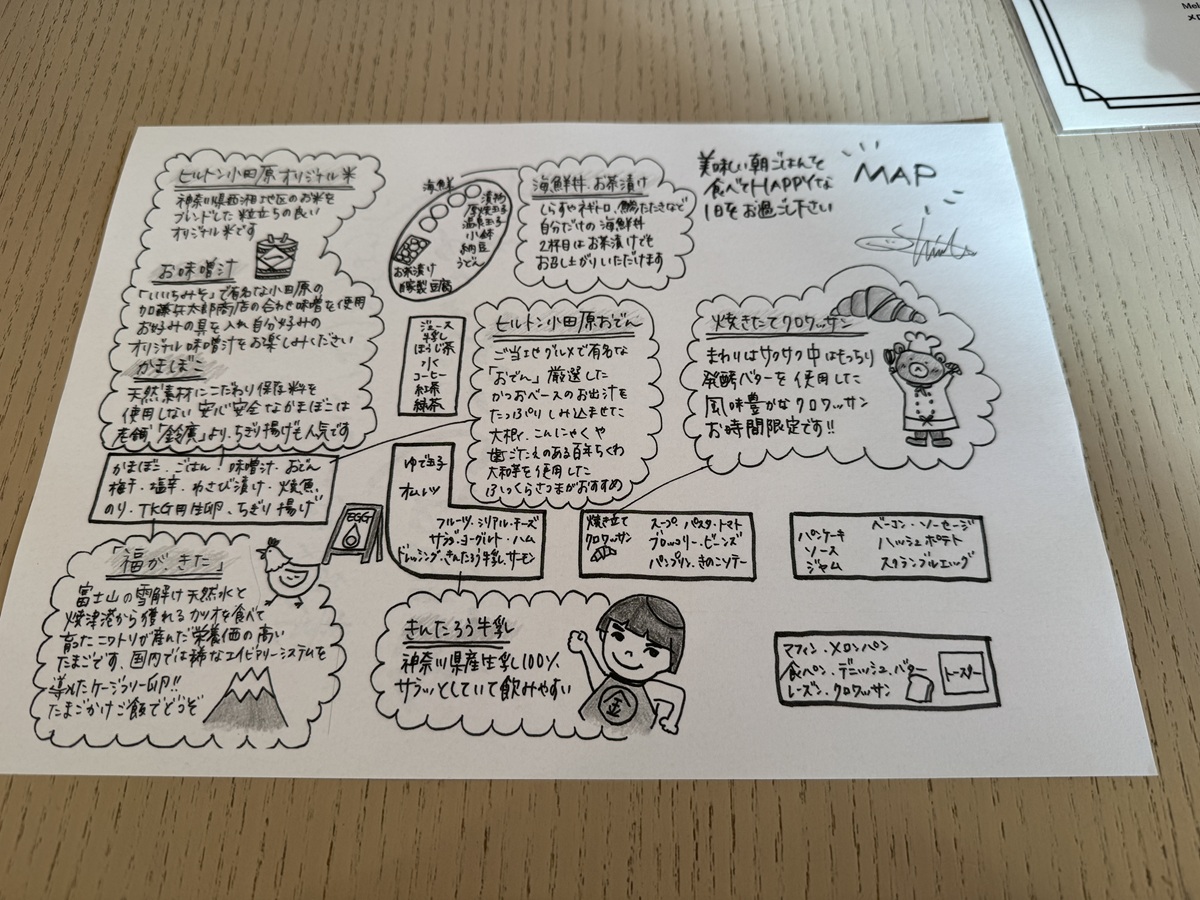 ヒルトン小田原オリジナル米
神奈川県西湘地区のお米を
ブレンドした粒立ちの良い
オリジナル米です
お味噌汁
「いいちみそ」で有名な小田原の
加藤兵太郎商店の合わせ味噌を使用
お好みの具を入れ自分好みの
オリジナル味噌汁をお楽しみください
かまぼこ
天然素材にこだわり保存料を
使用しない安心安全なかまぼこは
老舗「鈴廣」より、ちぎり揚げも人気です
かまぼこ・ごはん・味噌汁・おでん
梅干・塩辛・わさび漬け・焼魚、
のり・TKG用生卵、ちぎり揚げ
「福が、きた」
富士山の雪解け天然水と
焼津港から獲れるカツオを食べて
育ったニワトリが産んだ栄養価の高い
たまごです、国内では稀なエイビアリーシステムを
導入したケージフリー卵!!
たまごかけご飯でどうぞ
EGG
海鮮
漬物
厚焼玉子
温泉玉子
小鉢
納豆
うどん
お茶漬け
自家製豆腐
海鮮丼・お茶漬け
しらすやネギトロ、鯵たたきなど
自分だけの海鮮丼
2杯目はお茶漬けでも
お召し上がりいただけます
美味しい朝ごはんを
食べてHAPPYな
1日をお過ごし下さい
MAP
ジュース
牛乳
ほうじ茶
水
コーヒー
紅茶
緑茶
ヒルトン小田原おでん
ご当地グルメで有名な
「おでん」厳選した
かつおベースのお出汁を
たっぷりしみ込ませた
大根、こんにゃくや
歯ごたえのある百年ちくわ
大和芋を使用した
ふっくらさつまがおすすめ
焼きたてクロワッサン
まわりはサクサク中はもっちり
発酵バターを使用した
風味豊かなクロワッサン
お時間限定です!!
ゆで玉子
オムレツ
フルーツ・シリアル・チーズ
サラダ・ヨーグルト・ハム
ドレッシング・きんたろう牛乳・サーモン
焼き立て
クロワッサン
スープ、パスタ・トマト
ブロッコリー・ビーンズ
パンプリン・きのこソテー
パンケーキ
ソース
ジャム
ベーコン・ソーセージ
ハッシュポテト
スクランブルエッグ
きんたろう牛乳
神奈川県産生乳100%
サラッとしていて飲みやすい
金
マフィン・メロンパン
食パン・デニッシュ・バター
レーズン・クロワッサン
トースター